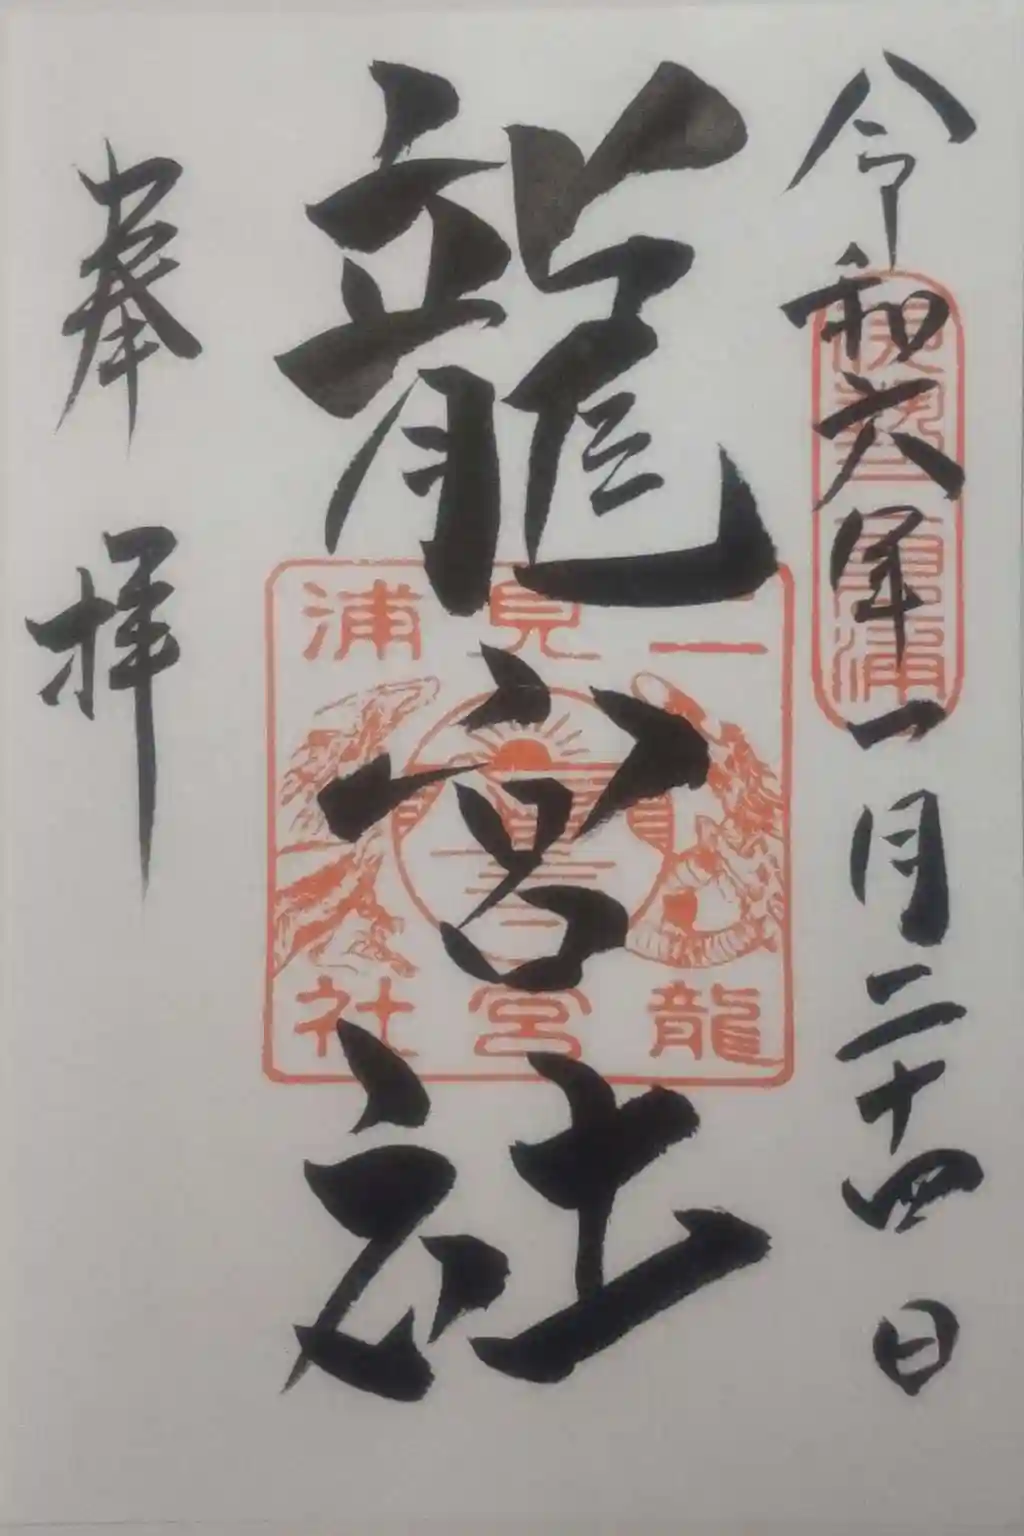 令和六年一月二十四日
龍宮社
奉拝
二見浦
龍宮社